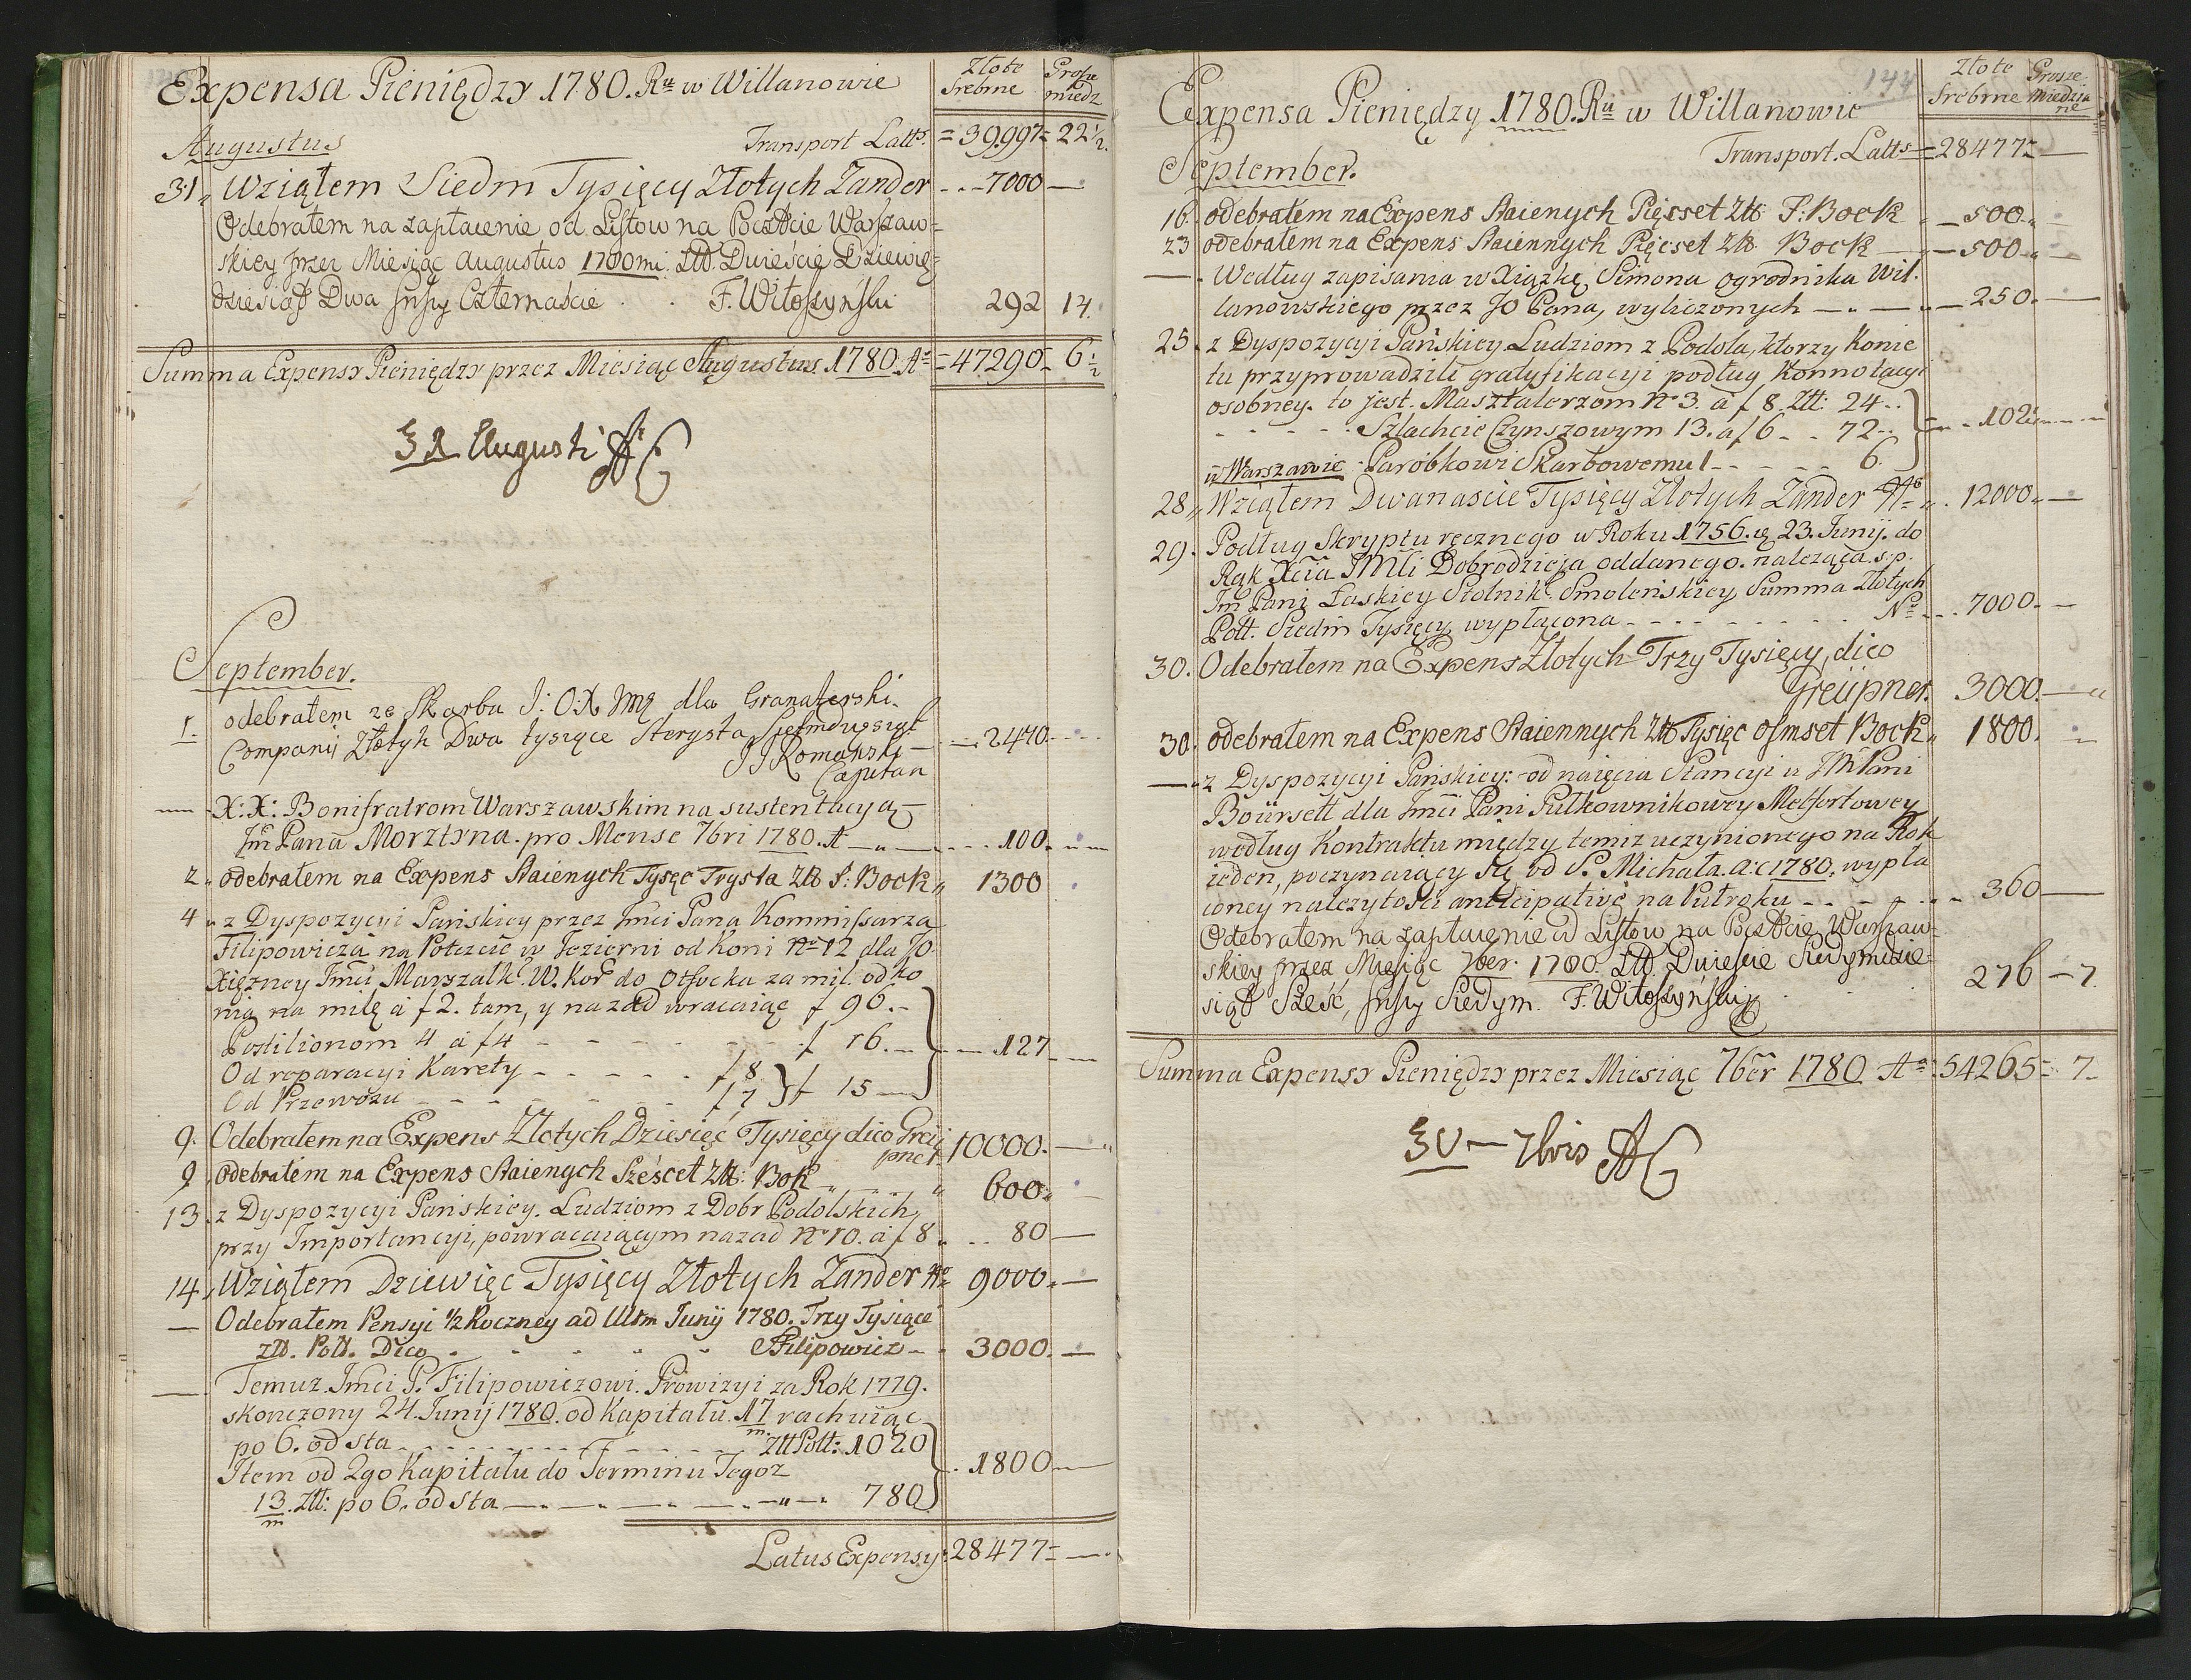 Expensa Pieniędzy 1780. Ru w Willanowie
Złote Srebrne
Grosze miedz
Augustus
Transport Latts = 39,997 = 22 1/2.
31 „ Wziąłem Siedm Tysięcy Złotych Zander - . . - 7000 —
Odebrałem na zapłacenie od Listow na Poczcie Warszaw=
skiey przez Miesiąc Augustus 1780 mi. Złł. Dwieście Dziewię=
dziesiąt Dwa Czternaście . . F. Witoszyński 292 14.
Summa Expensy Pieniędzy przez Miesiąc Augustus 1780 Ao = 47290 - 6 1/2
31 Augusti
September.
1. odebrałem ze Skarbu J: O: X Jmę dla Granatierski.
Companij Złotyh Dwa tysiące Sterysta Siedmdzysiąt — 2470 - - -
J J Romański —
Capitan
— X: X: Bonifratrom Warszawskim na sustentacyą —
Jm Pana Morztyna. pro Mense 7bri 1780. A — „ — - - . 100. „ —
2 „ odebrałem na Expens Staienych Tysęc Trysta Złł F: Bock „ 1300
4 „ z Dyspozycyi Pańskiey przez Jmci Pana Kommissarza
Filipowicza na Poczcie w Jeziorni od Koni No 12 dla JO.
Xiężney Jmci Marszałk. W. Kor do Otfocka za mil. od ko
nia na milę à f 2. tam, y nazad wracaiąc f 96. -
Postilionom 4 à f 4 - - - - - f 16. — - — 127 - —
Od reparacyi Karety - - - - - f 8
Od Przewozu - - - - - f 7 } f 15 —
9. Odebrałem na Expens Złotych Dziesięć Tysięcy dico Greü
pner 10000. — „
9 odebrałem na Expens Staienych Sześcet Złł: Bok „ — „ 600 „ —
13. z Dyspozycyi Pańskiey. Ludziom z Dobr Podolskich,
przy Importancyi, powracaiącym nazad No 10. à f 8 „ . . 80 —
14 „ Wziąłem Dziewięc Tysięcy Złotych Zander Ao 9000. —
— Odebrałem Pensyi 1/2 Roczney ad Ultm Junij 1780. Trzy Tysiące
złł. Poll. Dico . - „ „ „ Filipowicz - - 3000. —
— Temuz Jmci P. Filipowiczowi. Prowizyi za Rok 1779.
skonczony 24. Junij 1780. od Kapitału. 17/m rachuiąc
po 6. od sta - - - - - Złł Poll: 1020
Item od 2go Kapitału do Terminu Tegoż . 1800 —
13/m Złł: po 6. od Sta — „ — „ — „ — 780
Latus Expensy: 28477 = — .
144
Expensa Pieniędzy 1780. Ru w Willanowie
Złote Srebrne
Grosze Miedzia ne
Transport. Latts = 28477 = —
September.
16. odebrałem na Expens Staienych Pięsset Złł F: Bock — 500 „
23 odebrałem na Expens Staiennych Pięcset Złł. Bock — 500 „
— Według zapisania w Xiążkę Simona ogrodnika Wil.
lanowskiego przez JO Pana, wyliczonych — „ — — 250. —
25. z Dyspozycyi Pańskiey Ludziom z Podola, ktorzy Konie
tu przyprowadzili gratyfikacyi podług Konnotacyi
osobney. to jest. Masztalerzom No 3. à f 8 Złł: 24 . .
- - - - Szlachcie Czynszowym 13. à f 6 - - 72 - . } - - 102 - - -
w Warszawie - Parobkowi Skarbowemu 1 - - - - 6.
28 „ Wziąłem Dwanascie Tysięcy Złotych Zander Ao „ . 12000 „ —
29. Podług Skryptu ręcznego w Roku 1756. ą 23. Junij. do
Rąk Xcia JMci Dobrodzieja oddanego. naleząca ś: p.
Jm Pani Łaskiey Stolnik. Smoleńskiey Summa Złotych
Poll. Siedm Tysięcy wypłacona - - - - - No - . 7000. —
30. Odebrałem na Expens Złotych Trzy Tysięcy, dico
Greüpner. 3000. — „
30. odebrałem na Expens Staiennych Złł Tysięc osmset Bock „ 1800. —
— „ z Dyspozycyi Pańskiey: od naięcia Stancyi u JMPani
Boürsett dla Jmci Pani Pułkownikowey Melfortowey
według Kontraktu między temiz uczynionego na Rok
ieden, poczynaiący się od S. Michała. a: c 1780. wypła
coney nalezytości anticipativé na Pułroku - - - - - - 360 —
Odebrałem na zapłacenie od Listow na Poczcie Warszaw=
skiey przez Miesiąc 7ber. 1780. Złł. Dwieście Siedymdzie=
siąt Sześć, Siedym. F. Witoszyński . . . 276 - 7.
Summa Expensy Pieniędzy przez Miesiąc 7ber 1780 Ao. 54265 = 7 -
30 — 7bris